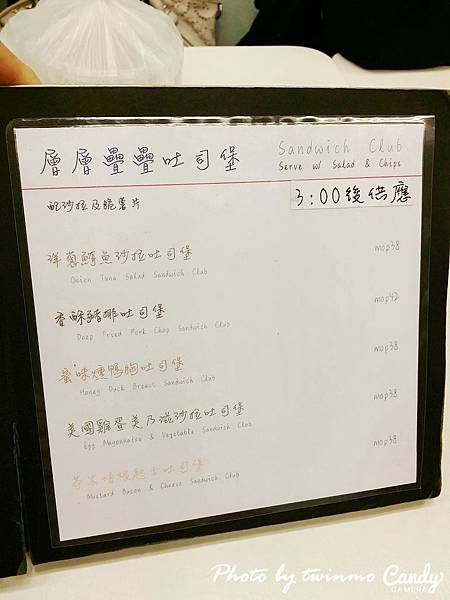 層層疊疊吐司堡
Sandwich Club
Serve w/ Salad & Chips
3:00後供應
配沙拉及脆薯片
洋蔥鮪魚沙拉吐司堡 mop38
Onion Tuna Salad Sandwich Club
香酥豬排吐司堡 mop42
Deep Fried Pork Chop Sandwich Club
蜜味燻鴨胸吐司堡 mop38
Honey Duck Breast Sandwich Club
美國雞蛋美乃滋沙拉吐司堡 mop38
Egg Mayonnaise & Vegetable Sandwich Club
芥末培根起士吐司堡 mop38
Mustard Bacon & Cheese Sandwich Club
Photo by twinmo Candy
CAMERA